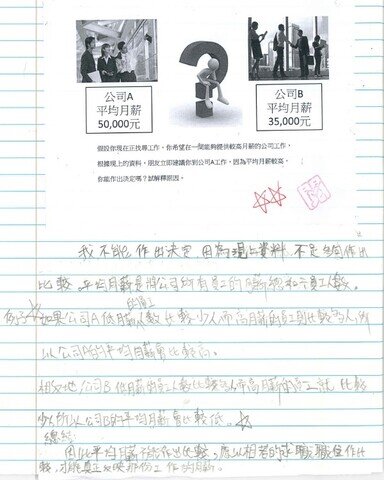 公司A
平均月薪
50,000元
公司B
平均月薪
35,000元
假設你現在正找尋工作，你希望在一間能夠提供較高月薪的公司工作，
根據現上的資料，朋友立即建議你到公司A工作，因為平均月薪較高，
你能作出決定嗎？試解釋原因。
我不能作出決定，因為現上資料不足夠作出
比較。平均月薪是將公司所有員工的月薪總和÷員工人數。
例子 如果公司A低月薪的員工人數比較少人而高月薪的員工則比較多人所
以公司A的平均月薪會比較高。
相反地公司B低月薪的員工人數比較多人而高月薪的員工就比較
少人所以公司B的平均月薪會比較低。
總結
因此平均月薪不能作出比較，應以相若的求職職位作比
較，才能真正反映那份工作的月薪。